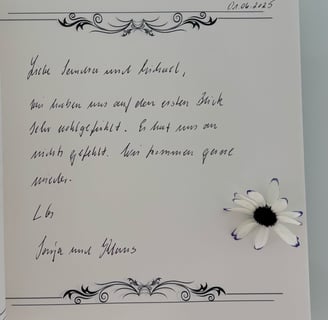 01.06.2025
Liebe Sandra und Michael,
wir haben uns auf den ersten Blick
sehr wohlgefühlt. Es hat uns an
nichts gefehlt. Wir kommen gerne
wieder.
LG
Sonja und Klaus